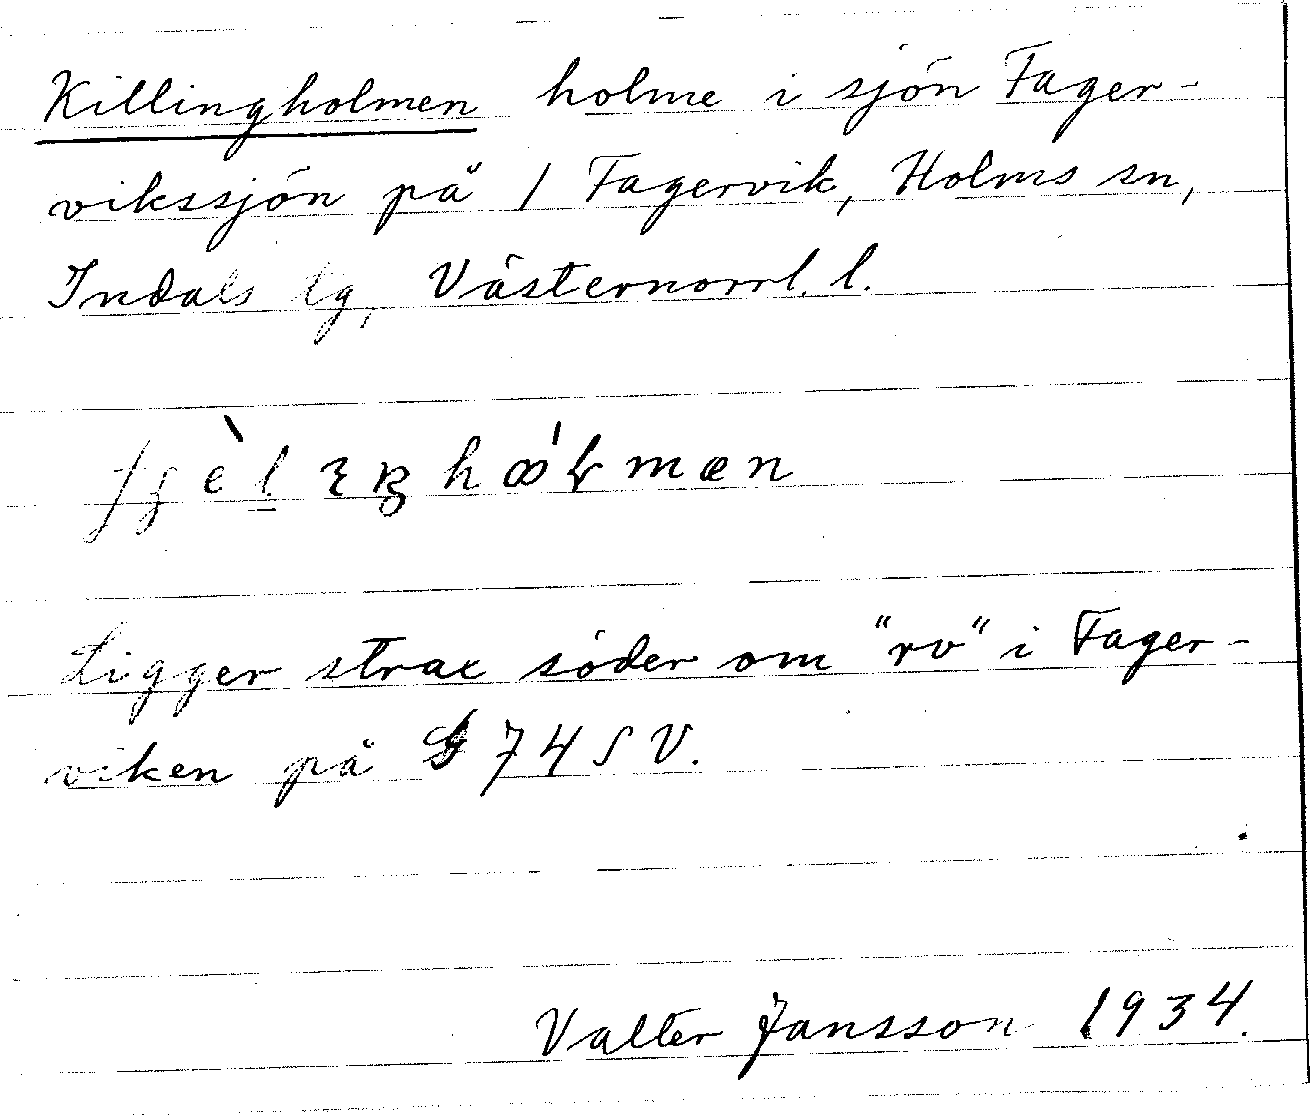 Killingholmen holme i sjön Fager-
vikssjön på / Fagervik, Holms sn,
Indals tg, Västernorrl. l.
Ligger strax söder om "rv" i Fager-
viken på 74 SV.
Valter Jansson 1934.